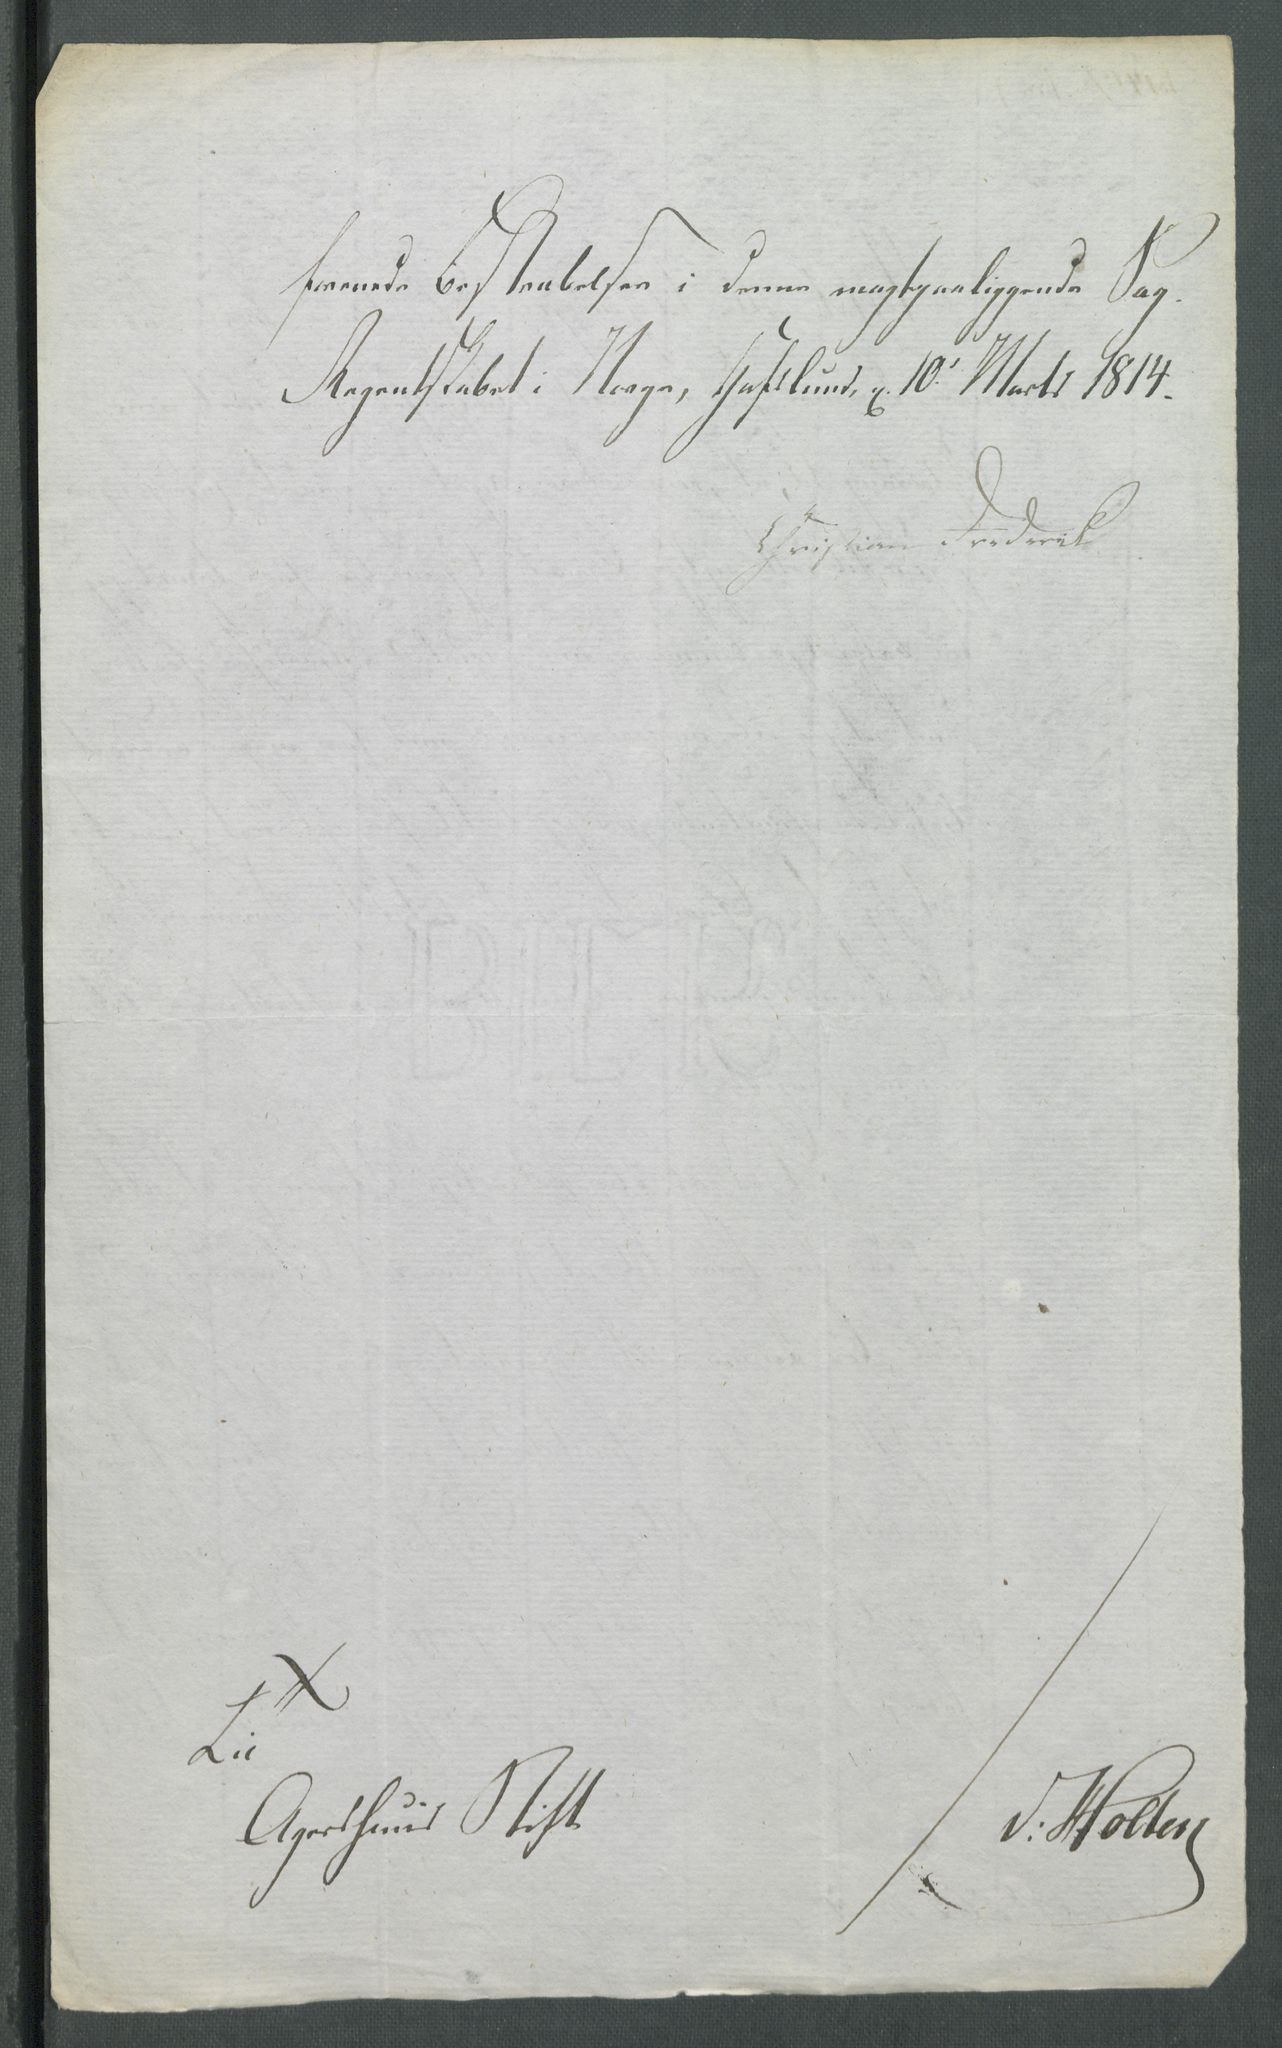 forenede Bestræbelser i denne magtpaaliggende Sag.
Regentskabet i Norge, Hafslund, d. 10.' Marts 1814.
Christian Frederik
Til
Agershuus Stift
v: Holten